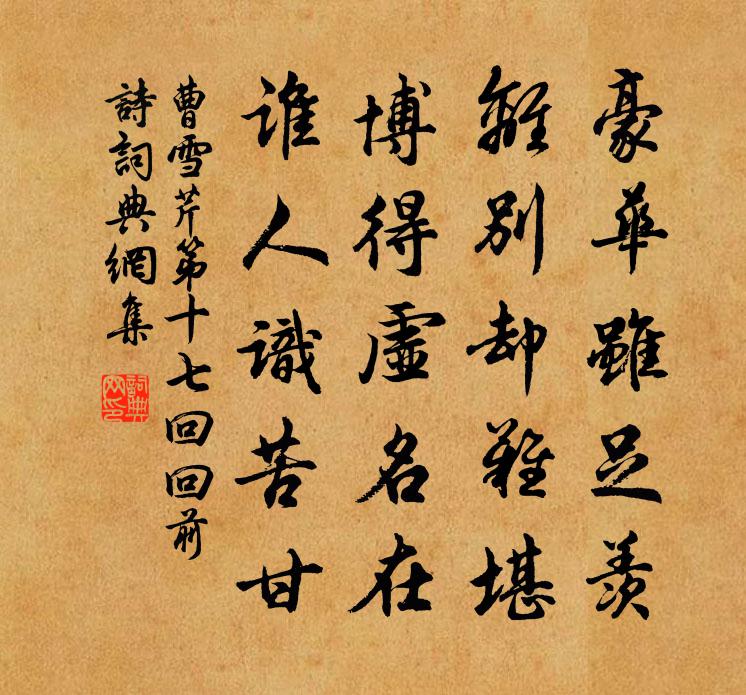 豪華雖足羨
離別却難堪
博得虛名在
誰人識苦甘
曹雪芹第十七回回前
詩詞典網集
詞典网印